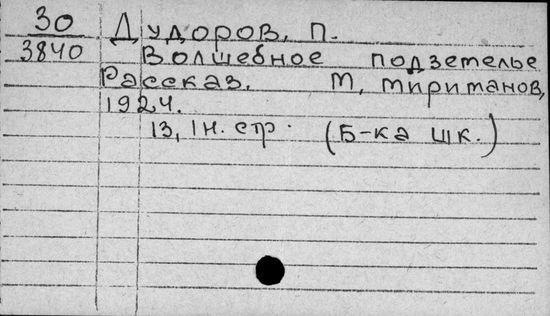 30 Дудоров, П.
3840 Волшебное подзетелье
Рассказ. М, Мириманов,
1924.
13, 1н. стр. (Б-ка шк.)